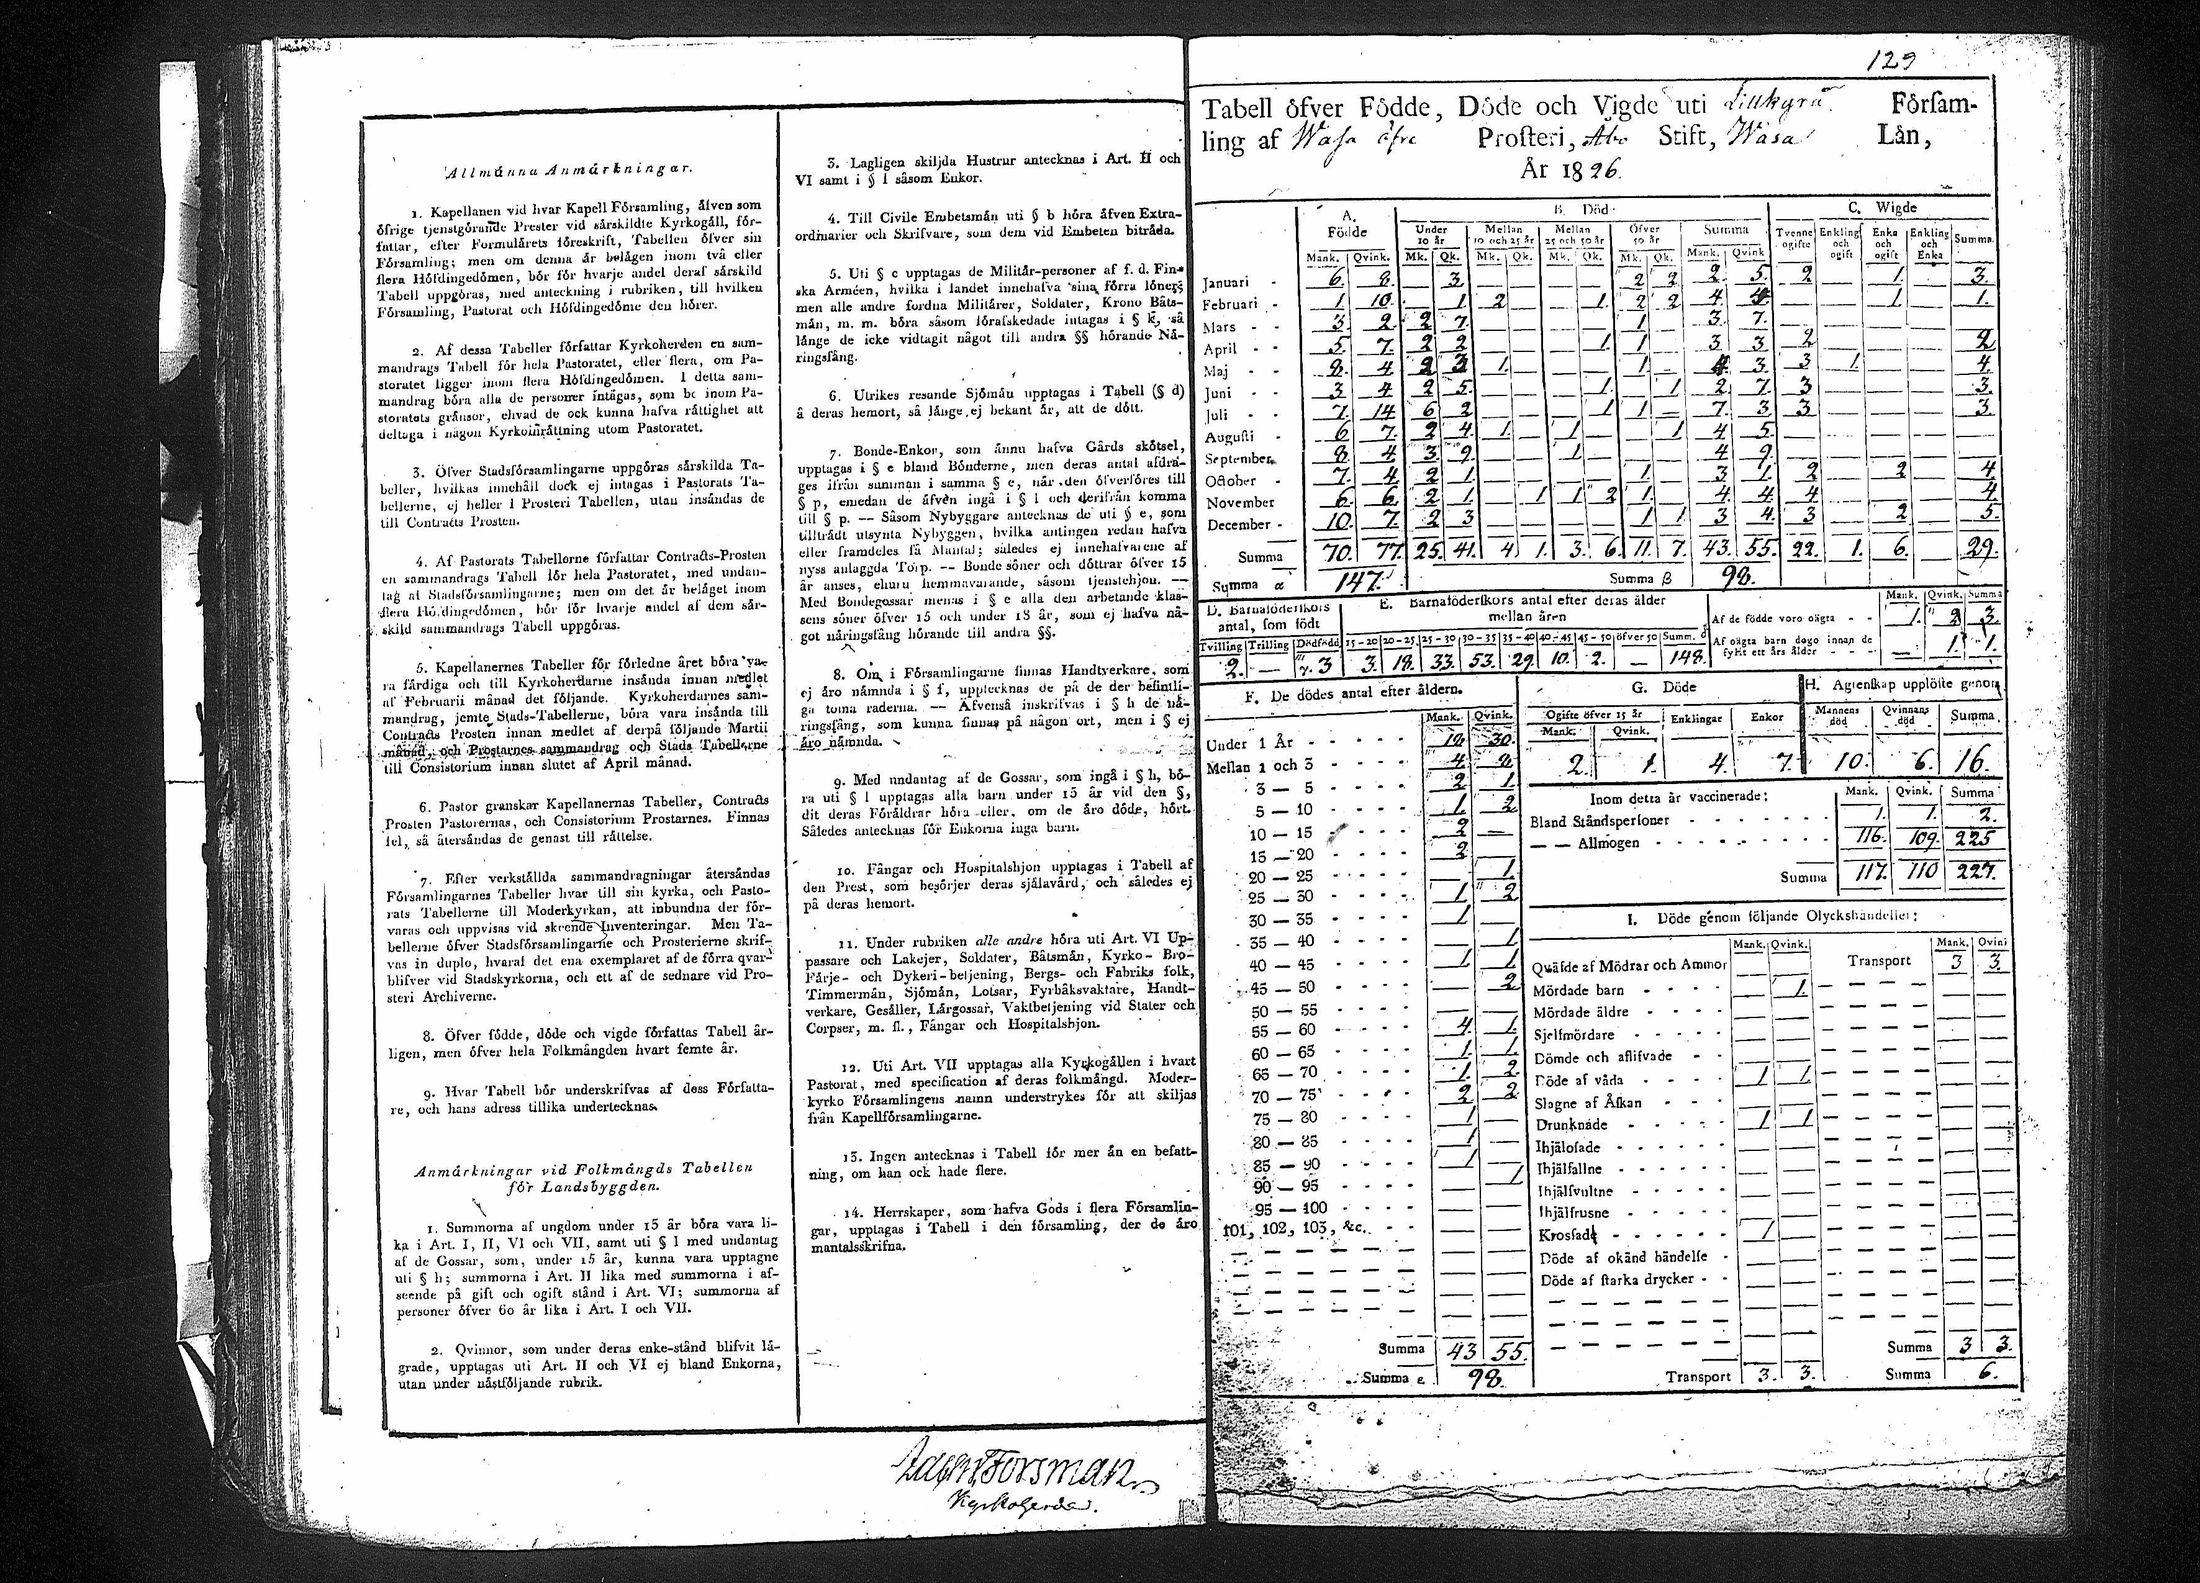 Allmänna Anmärkningar.
1. Kapellanen vid hvar Kapell Församling, äfven som
öfrige tjenstgörande Prester vid särskildte Kyrkogäll, för-
fattar, efter Formulärets föreskrift, Tabellen öfver sin
Församling; men om denna är belägen inom två eller
flera Höfdingedömen, bör för hvarje andel deraf särskild
Tabell uppgöras, med anteckning i rubriken, till hvilken
Församling, Pastorat och Höfdingedöme den hörer.
2. Af dessa Tabeller författar Kyrkoherden en sam-
mandrags Tabell för hela Pastoratet, eller flera, om Pa-
storatet ligger inom flera Höfdingedömen. I detta sam-
mandrag böra alla de personer intagas, som bo inom Pa-
storatets gränsor, ehvad de ock kunna hafva rättighet att
deltaga i någon Kyrkoinrättning utom Pastoratet.
3. Öfver Stadsförsamlingarne uppgöras särskilda Ta-
beller, hvilkas innehåll dock ej intagas i Pastorats Ta-
bellerne, ej heller i Prosteri Tabellen, utan insändas de
till Contracts Prosten.
4. Af Pastorats Tabellorne författar Contracts-Prosten
en sammandrags Tabell för hela Pastoratet, med undan-
tag af Stadsförsamlingarne; men om det är beläget inom
flera Höfdingedömen, bör för hvarje andel af dem sär-
skild sammandrags Tabell uppgöras.
5. Kapellanernes Tabeller för förledne året böra va-
ra färdiga och till Kyrkoherdarne insända innan medlet
af Februarii månad det följande. Kyrkoherdarnes sam-
mandrag, jemte Stads-Tabellerne, böra vara insända till
Contracts Prosten innan medlet af derpå följande Martii
månad, och Prostarnes sammandrag och Stads Tabellerne
till Consistorium innan slutet af April månad.
6. Pastor granskar Kapellanernas Tabeller, Contracts
Prosten Pastorernas, och Consistorium Prostarnes. Finnas
fel, så återsändas de genast till rättelse.
7. Efter verkställda sammandragningar återsändas
Församlingarnes Tabeller hvar till sin kyrka, och Pasto-
rats Tabellerne till Moderkyrkan, att inbundna der för-
varas och uppvisas vid skeende Inventeringar. Men Ta-
bellerne öfver Stadsförsamlingarne och Prosterierne skrif-
vas in duplo, hvaraf det ena exemplaret af de förra qvar-
blifver vid Stadskyrkorna, och ett af de sednare vid Pro-
steri Archiverne.
8. Öfver födde, döde och vigde författas Tabell år-
ligen, men öfver hela Folkmängden hvart femte år.
9. Hvar Tabell bör underskrifvas af dess Författa-
re, och hans adress tillika undertecknas.
Anmärkningar vid Folkmängds Tabellen
för Landsbyggden.
1. Summorna af ungdom under 15 år böra vara li-
ka i Art. I, II, VI och VII, samt uti § l med undantag
af de Gossar, som, under 15 år, kunna vara upptagne
uti § h; summorna i Art. II lika med summorna i af-
seende på gift och ogift stånd i Art. VI; summorna af
personer öfver 60 år lika i Art. I och VII.
2. Qvinnor, som under deras enke-stånd blifvit lä-
grade, upptagas uti Art. II och VI ej bland Enkorna,
utan under nästföljande rubrik.
3. Lagligen skiljda Hustrur antecknas i Art. II och
VI samt i § l såsom Enkor.
4. Till Civile Embetsmän uti § b höra äfven Extra-
ordinarier och Skrifvare, som dem vid Embeten biträda.
5. Uti § c upptagas de Militär-personer af f. d. Fin-
ska Arméen, hvilka i landet innehafva sina förra löner;
men alle andre fordna Militärer, Soldater, Krono Båts-
män, m. m. böra såsom förafskedade intagas i § k, så
länge de icke vidtagit något till andra §§ hörande Nä-
ringsfång.
6. Utrikes resande Sjömän upptagas i Tabell (§ d)
å deras hemort, så länge ej bekant är, att de dött.
7. Bonde-Enkor, som ännu hafva Gårds skötsel,
upptagas i § e bland Bönderne, men deras antal afdra-
ges ifrån summan i samma § e, när den öfverföres till
§ p, emedan de äfven ingå i § l och derifrån komma
till § p. — Såsom Nybyggare antecknas de uti § e, som
tillträdt utsynta Nybyggen, hvilka antingen redan hafva
eller framdeles få Mantal; således ej innehafvarene af
nyss anlaggda Torp. — Bonde söner och döttrar öfver 15
år anses, ehuru hemmavarande, såsom tjenstehjon. —
Med Bondegossar menas i § e alla den arbetande klas-
sens söner öfver 15 och under 18 år, som ej hafva nå-
got näringsfång hörande till andra §§.
8. Om i Församlingarne finnas Handtverkare, som
ej äro nämnda i § f, upptecknas de på de der befintli-
ga toma raderna. — Äfvenså inskrifvas i § h de nä-
ringsfång, som kunna finnas på någon ort, men i § ej
äro nämnda.
9. Med undantag af de Gossar, som ingå i § h, bö-
ra uti § l upptagas alla barn under 15 år vid den §,
dit deras Föräldrar höra eller, om de äro döde, hört.
Således antecknas för Enkorna inga barn.
10. Fångar och Hospitalshjon upptagas i Tabell af
den Prest, som besörjer deras själavård, och således ej
på deras hemort.
11. Under rubriken alle andre höra uti Art. VI Up-
passare och Lakejer, Soldater, Båtsmän, Kyrko- Bro-
Färje- och Dykeri-betjening, Bergs- och Fabriks folk,
Timmermän, Sjömän, Lotsar, Fyrbåksvaktare, Handt-
verkare, Gesäller, Lärgossar, Vaktbetjening vid Stater och
Corpser, m. fl., Fångar och Hospitalshjon.
12. Uti Art. VII upptagas alla Kyrkogällen i hvart
Pastorat, med specification af deras folkmängd. Moder-
kyrko Församlingens namn understrykes för att skiljas
från Kapellförsamlingarne.
13. Ingen antecknas i Tabell för mer än en befatt-
ning, om han ock hade flere.
14. Herrskaper, som hafva Gods i flera Församlin-
gar, upptagas i Tabell i den församling, der de äro
mantalsskrifna.
Forsman
Kyrkoherde.
129
Tabell öfver Födde, Döde och Vigde uti Lillkyro Försam-
ling af Wasa öfre Prosteri, Åbo Stift, Wasa Län,
År 1826.
A. Födde B. Död C. Wigde
Under 10 år Mellan 10 och 25 år Mellan 25 och 50 år Öfver 50 år Summa Tvenne ogifte Enkling och ogift Enka och ogift Enkling och Enka Summa
Mank. Qvink. Mk. Qk. Mk. Qk. Mk. Qk. Mk. Qk. Mank. Qvink
Januari - 6. 8. 3. 2 2 2. 5. 2 1. 3.
Februari - 1. 10. 1. 2 1. 2 2 4. 4. 1. 1.
Mars - - 3. 2. 2 7. 1 3. 7.
April - - 5. 7. 2 2 1. 1 3. 3. 2 2
Maj - - 8. 4 2 3 1. 1 4. 3. 3 1. 4.
Juni - - 3 4 2 5. 1. 1 2. 7. 3 3.
Juli - - 7. 14 6 2 1 1 7. 3. 3 3.
Augusti - 6 7. 2 4. 1. 1 1 4 5.
September 8. 4 3 9. 1 4 9.
October - 7. 4 2 1. 1. 3 1. 2 2 4.
November 6. 6. 2 1. 1 1 2 1. 4. 4. 4 4.
December - 10. 7. 2 3 1 1. 3 4. 3 2 5.
Summa 70. 77. 25. 41. 4 1. 3. 6. 11. 7. 43. 55. 22. 1. 6. 29.
Summa α 147. Summa β 98.
D. Barnaföderskors antal, som födt
Tvilling Trilling Dödfödd
2. — 3
E. Barnaföderskors antal efter deras ålder mellan åren
15-20 20-25 25-30 30-35 35-40 40-45 45-50 öfver 50 Summ.
3. 18. 33. 53. 29. 10. 2. — 148.
Mank. Qvink. Summa
Af de födde voro oägta - - 1. 2 3.
Af oägta barn dogo innan de fyllt ett års ålder - - - — 1. 1.
F. De dödes antal efter åldern.
Mank. Qvink.
Under 1 År - - - - - 18 30.
Mellan 1 och 3 - - - - 4.
3 — 5 - - - - 2 1.
5 — 10 - - - - 1. 2
10 — 15 - - - - 2 —
15 — 20 - - - - 2.
20 — 25 - - - - — 1.
25 — 30 - - - - 1 2
30 — 35 - - - - 1 —
35 — 40 - - - - 1
40 — 45 - - - - 1 1
45 — 50 - - - - — 2
50 — 55 - - - - — —
55 — 60 - - - - 4. 1.
60 — 65 - - - - 1. 1.
65 — 70 - - - - 1. 2
70 — 75 - - - - 2 2
75 — 80 - - - - 1
80 — 85 - - - - 1 —
85 — 90 - - - - 1
90 — 95 - - - - 1
95 — 100 - - - -
101, 102, 103, &c. - -
Summa 43 55.
Summa ε 98.
G. Döde
Ogifte öfver 15 år Enklingar Enkor
Mank. Qvink.
2. 1. 4 7.
H. Ägtenskap upplöste genom
Mannens död Qvinnans död Summa.
10. 6. 16.
Inom detta år vaccinerade: Mank. Qvink. Summa
Bland Ståndspersoner - - - - - - - 1. 1. 2.
— — Allmogen - - - - - - - - 116. 109. 225
Summa 117. 110 227.
I. Döde genom följande Olyckshändelser:
Mank. Qvink. Mank. Qvink
Quäfde af Mödrar och Ammor — — Transport 3 3.
Mördade barn - - - - — 1.
Mördade äldre - - - -
Sjelfmördare - - - -
Dömde och aflifvade - -
Döde af våda - - - - 1 1.
Slagne af Åskan - - -
Drunknade - - - - - 1 1
Ihjälosade - - - -
Ihjälfallne - - - -
Ihjälfvultne - - - - -
Ihjälfrusne - - - - -
Krossade - - - - - - 1
Döde af okänd händelse -
Döde af starka drycker - -
Summa 3 3.
Transport 3. 3. Summa 6.